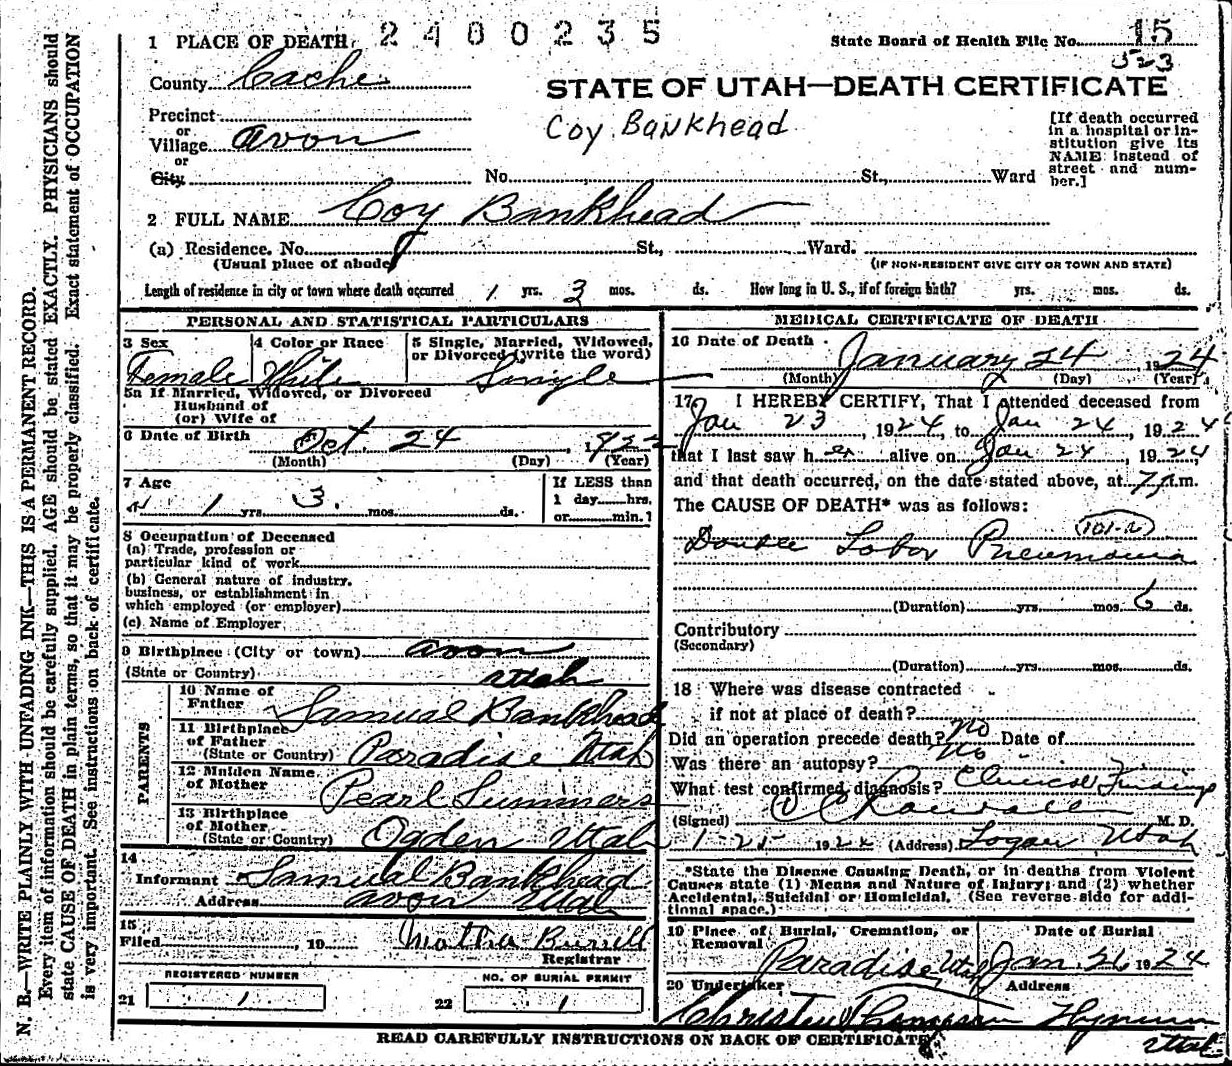 2400235
1 PLACE OF DEATH
State Board of Health File No. 15
523
County Cache
STATE OF UTAH—DEATH CERTIFICATE
Coy Bankhead
Precinct
or
Village Avon
or
City No. St., Ward
[If death occurred
in a hospital or in-
stitution give its
NAME instead of
street and num-
ber.]
2 FULL NAME Coy Bankhead
(a) Residence. No. St., Ward.
(Usual place of abode) (IF NON-RESIDENT GIVE CITY OR TOWN AND STATE)
Length of residence in city or town where death occurred 1 yrs. 3 mos. ds. How long in U. S., if of foreign birth? yrs. mos. ds.
PERSONAL AND STATISTICAL PARTICULARS
3 Sex 4 Color or Race 5 Single, Married, Widowed,
or Divorced (write the word)
Female White Single
5a If Married, Widowed, or Divorced
Husband of
(or) Wife of
6 Date of Birth Oct. 24, 1922
(Month) (Day) (Year)
7 Age
1 yrs. 3. mos. ds.
If LESS than
1 day hrs.
or min.?
8 Occupation of Deceased
(a) Trade, profession or
particular kind of work
(b) General nature of industry,
business, or establishment in
which employed (or employer)
(c) Name of Employer
9 Birthplace (City or town) Avon
(State or Country) Utah
PARENTS
10 Name of
Father Samual Bankhead
11 Birthplace
of Father
(State or Country) Paradise Utah
12 Maiden Name
of Mother Pearl Summers
13 Birthplace
of Mother
(State or Country) Ogden Utah
14
Informant Samual Bankhead
Address Avon Utah
15
Filed , 19 Martha Burrell
Registrar
REGISTERED NUMBER NO. OF BURIAL PERMIT
21 1 22 1
MEDICAL CERTIFICATE OF DEATH
16 Date of Death
January 24 1924
(Month) (Day) (Year)
17 I HEREBY CERTIFY, That I attended deceased from
Jan 23, 1924, to Jan 24, 1924
that I last saw her alive on Jan 24, 1924,
and that death occurred, on the date stated above, at 7 p.m.
The CAUSE OF DEATH* was as follows:
101-2
Double Lobar Pneumonia
(Duration) yrs. mos. 6 ds.
Contributory
(Secondary)
(Duration) yrs. mos. ds.
18 Where was disease contracted
if not at place of death?
Did an operation precede death? No Date of
Was there an autopsy? No
What test confirmed diagnosis? Clinical Findings
(Signed) M. D.
1-25 1924 (Address) Logan, Utah
*State the Disease Causing Death, or in deaths from Violent
Causes state (1) Means and Nature of Injury; and (2) whether
Accidental, Suicidal or Homicidal. (See reverse side for addi-
tional space.)
19 Place of Burial, Cremation, or Date of Burial
Removal
Paradise, Utah Jan. 26 1924
20 Undertaker Address
Thompson Hyrum
Utah
READ CAREFULLY INSTRUCTIONS ON BACK OF CERTIFICATE
N. B.—WRITE PLAINLY WITH UNFADING INK—THIS IS A PERMANENT RECORD.
Every item of information should be carefully supplied. AGE should be stated EXACTLY. PHYSICIANS should
state CAUSE OF DEATH in plain terms, so that it may be properly classified. Exact statement of OCCUPATION
is very important. See instructions on back of certificate.